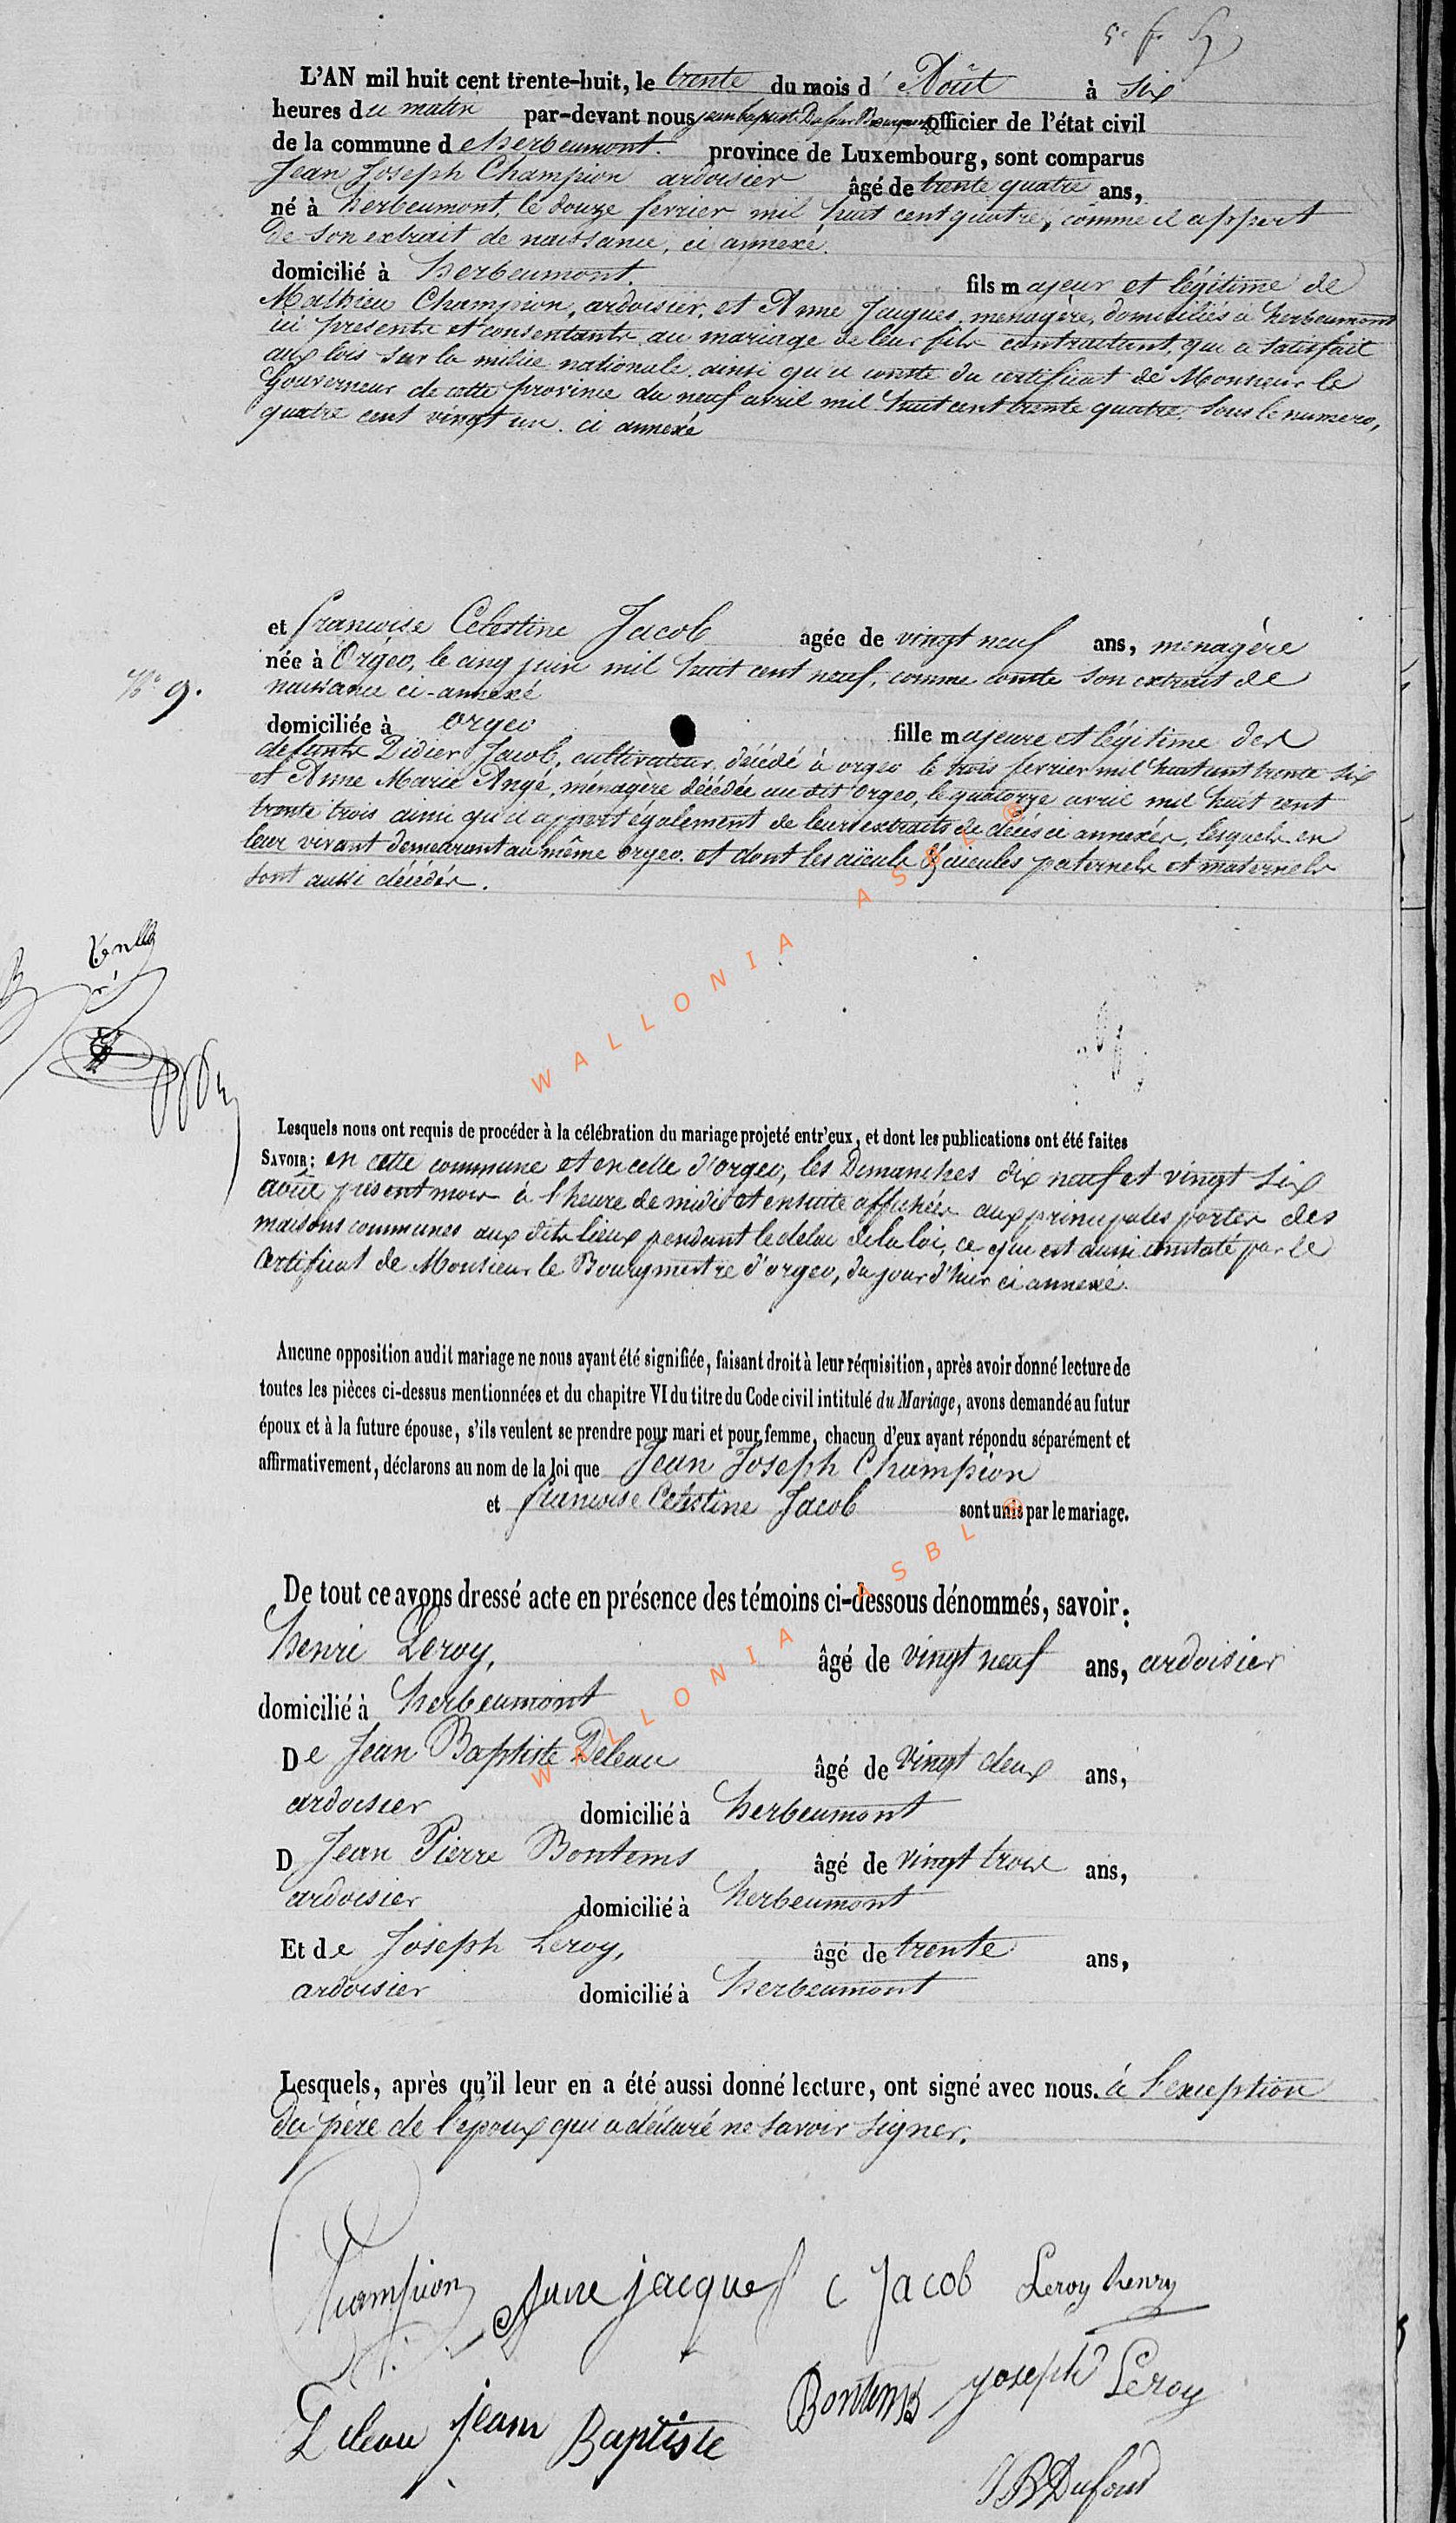 L'AN mil huit cent trente-huit, le trente du mois d' Août à six
heures du matin par-devant nous jean baptiste Dufour Officier de l'état civil
de la commune d'herbeumont. province de Luxembourg, sont comparus
Jean Joseph Champion ardoisier âgé de trente quatre ans,
né à herbeumont, le douze fevrier mil huit cent quatre, comme il appert
de son extrait de naissance, ci annexé.
domicilié à herbeumont. fils majeur et légitime de
Mathieu Champion, ardoisier, et Anne Jacques, menagère, domiciliés à herbeumont
ici presents et consentants au mariage de leur fils contractant, qui a satisfait
aux lois sur la milice nationale, ainsi qu'il conste du certificat de Monsieur le
Gouverneur de cette province du neuf avril mil huit cent trente quatre, sous le numero,
quatre cent vingt un. ci annexé
et francoise Celestine Jacob agée de vingt neuf ans, menagère
N° 9.
née à Orgeo, le cinq juin mil huit cent neuf, comme conste son extrait de
naissance ci-annexé
domiciliée à orgeo fille majeure et légitime des
defunts Didier Jacob, cultivateur, décédé à orgeo le trois fevrier mil huit cent trente six
et Anne Marie Angé, ménagère décédée au dit Orgeo, le quatorze avril mil huit cent
trente trois ainsi qu'il appert également de leurs extraits de décès ci annexés, lesquels en
leur vivant demeurant au même orgeo. et dont les aïeuls & aïeules paternels et maternels
sont aussi décédés.
WALLONIA ASBL ®
Lesquels nous ont requis de procéder à la célébration du mariage projeté entr'eux, et dont les publications ont été faites
SAVOIR: en cette commune et en celle d'orgeo, les Dimanches dix neuf et vingt six
août présent mois à l'heure de midi et ensuite affichées aux principales portes des
maisons communes aux dits lieux pendant le delai de la loi, ce qui est aussi constaté par le
certificat de Monsieur le Bourgmestre d'orgeo, du jour d'hier ci annexé.
Aucune opposition audit mariage ne nous ayant été signifiée, faisant droit à leur réquisition, après avoir donné lecture de
toutes les pièces ci-dessus mentionnées et du chapitre VI du titre du Code civil intitulé du Mariage, avons demandé au futur
époux et à la future épouse, s'ils veulent se prendre pour mari et pour femme, chacun d'eux ayant répondu séparément et
affirmativement, déclarons au nom de la loi que Jean Joseph Champion
et francoise Celestine Jacob sont unis par le mariage.
WALLONIA ASBL ®
De tout ce avons dressé acte en présence des témoins ci-dessous dénommés, savoir:
henri Leroy, âgé de vingt neuf ans, ardoisier
domicilié à herbeumont
De Jean Baptiste Deleau âgé de vingt deux ans,
ardoisier domicilié à herbeumont
D Jean Pierre Bontems âgé de vingt trois ans,
ardoisier domicilié à herbeumont
Et de Joseph Leroy, âgé de trente ans,
ardoisier domicilié à herbeumont
Lesquels, après qu'il leur en a été aussi donné lecture, ont signé avec nous. à l'exception
du père de l'époux qui a déclaré ne savoir signer.
Champion Anne jacques C Jacob Leroy henry
Deleau jean Baptiste Bontems joseph Leroy
JB Dufour